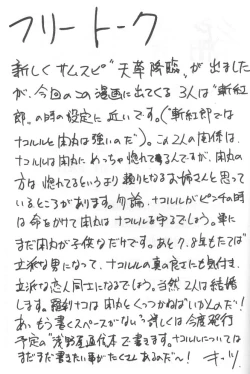 フリートーク
新しくサムスピ"天草降臨"が出ました
が、今回のこの漫画に出てくる3人は"斬紅
郎"の時の設定に近いです。("斬紅郎では
ナコルルと閑丸は強いのだ)。この2人の関係は、
ナコルルは閑丸にめっちゃ惚れてる3んですが、閑丸の
方は惚れてるというより頼りとなるお姉さんと思って
いるところがあります。勿論、ナコルルがピンチの時
は命をかけて閑丸はナコルルを守るでしょう。単に
まだ閑丸が子供なだけです。あと7、8年もたてば"
立派な男になって、ナコルルの真の良さにも気付き、
立派な恋人同士になるでしょう。当然2人は結婚
します。羅刹ナコは閑丸とくっつかねばいかんのだ!
あ、もう書くスペースがない"詳しくは今度発行
予定の"浅野屋通信2"で書きます。ナコルルについては
まだまだ書きたい事がたくさんあるのだ〜!